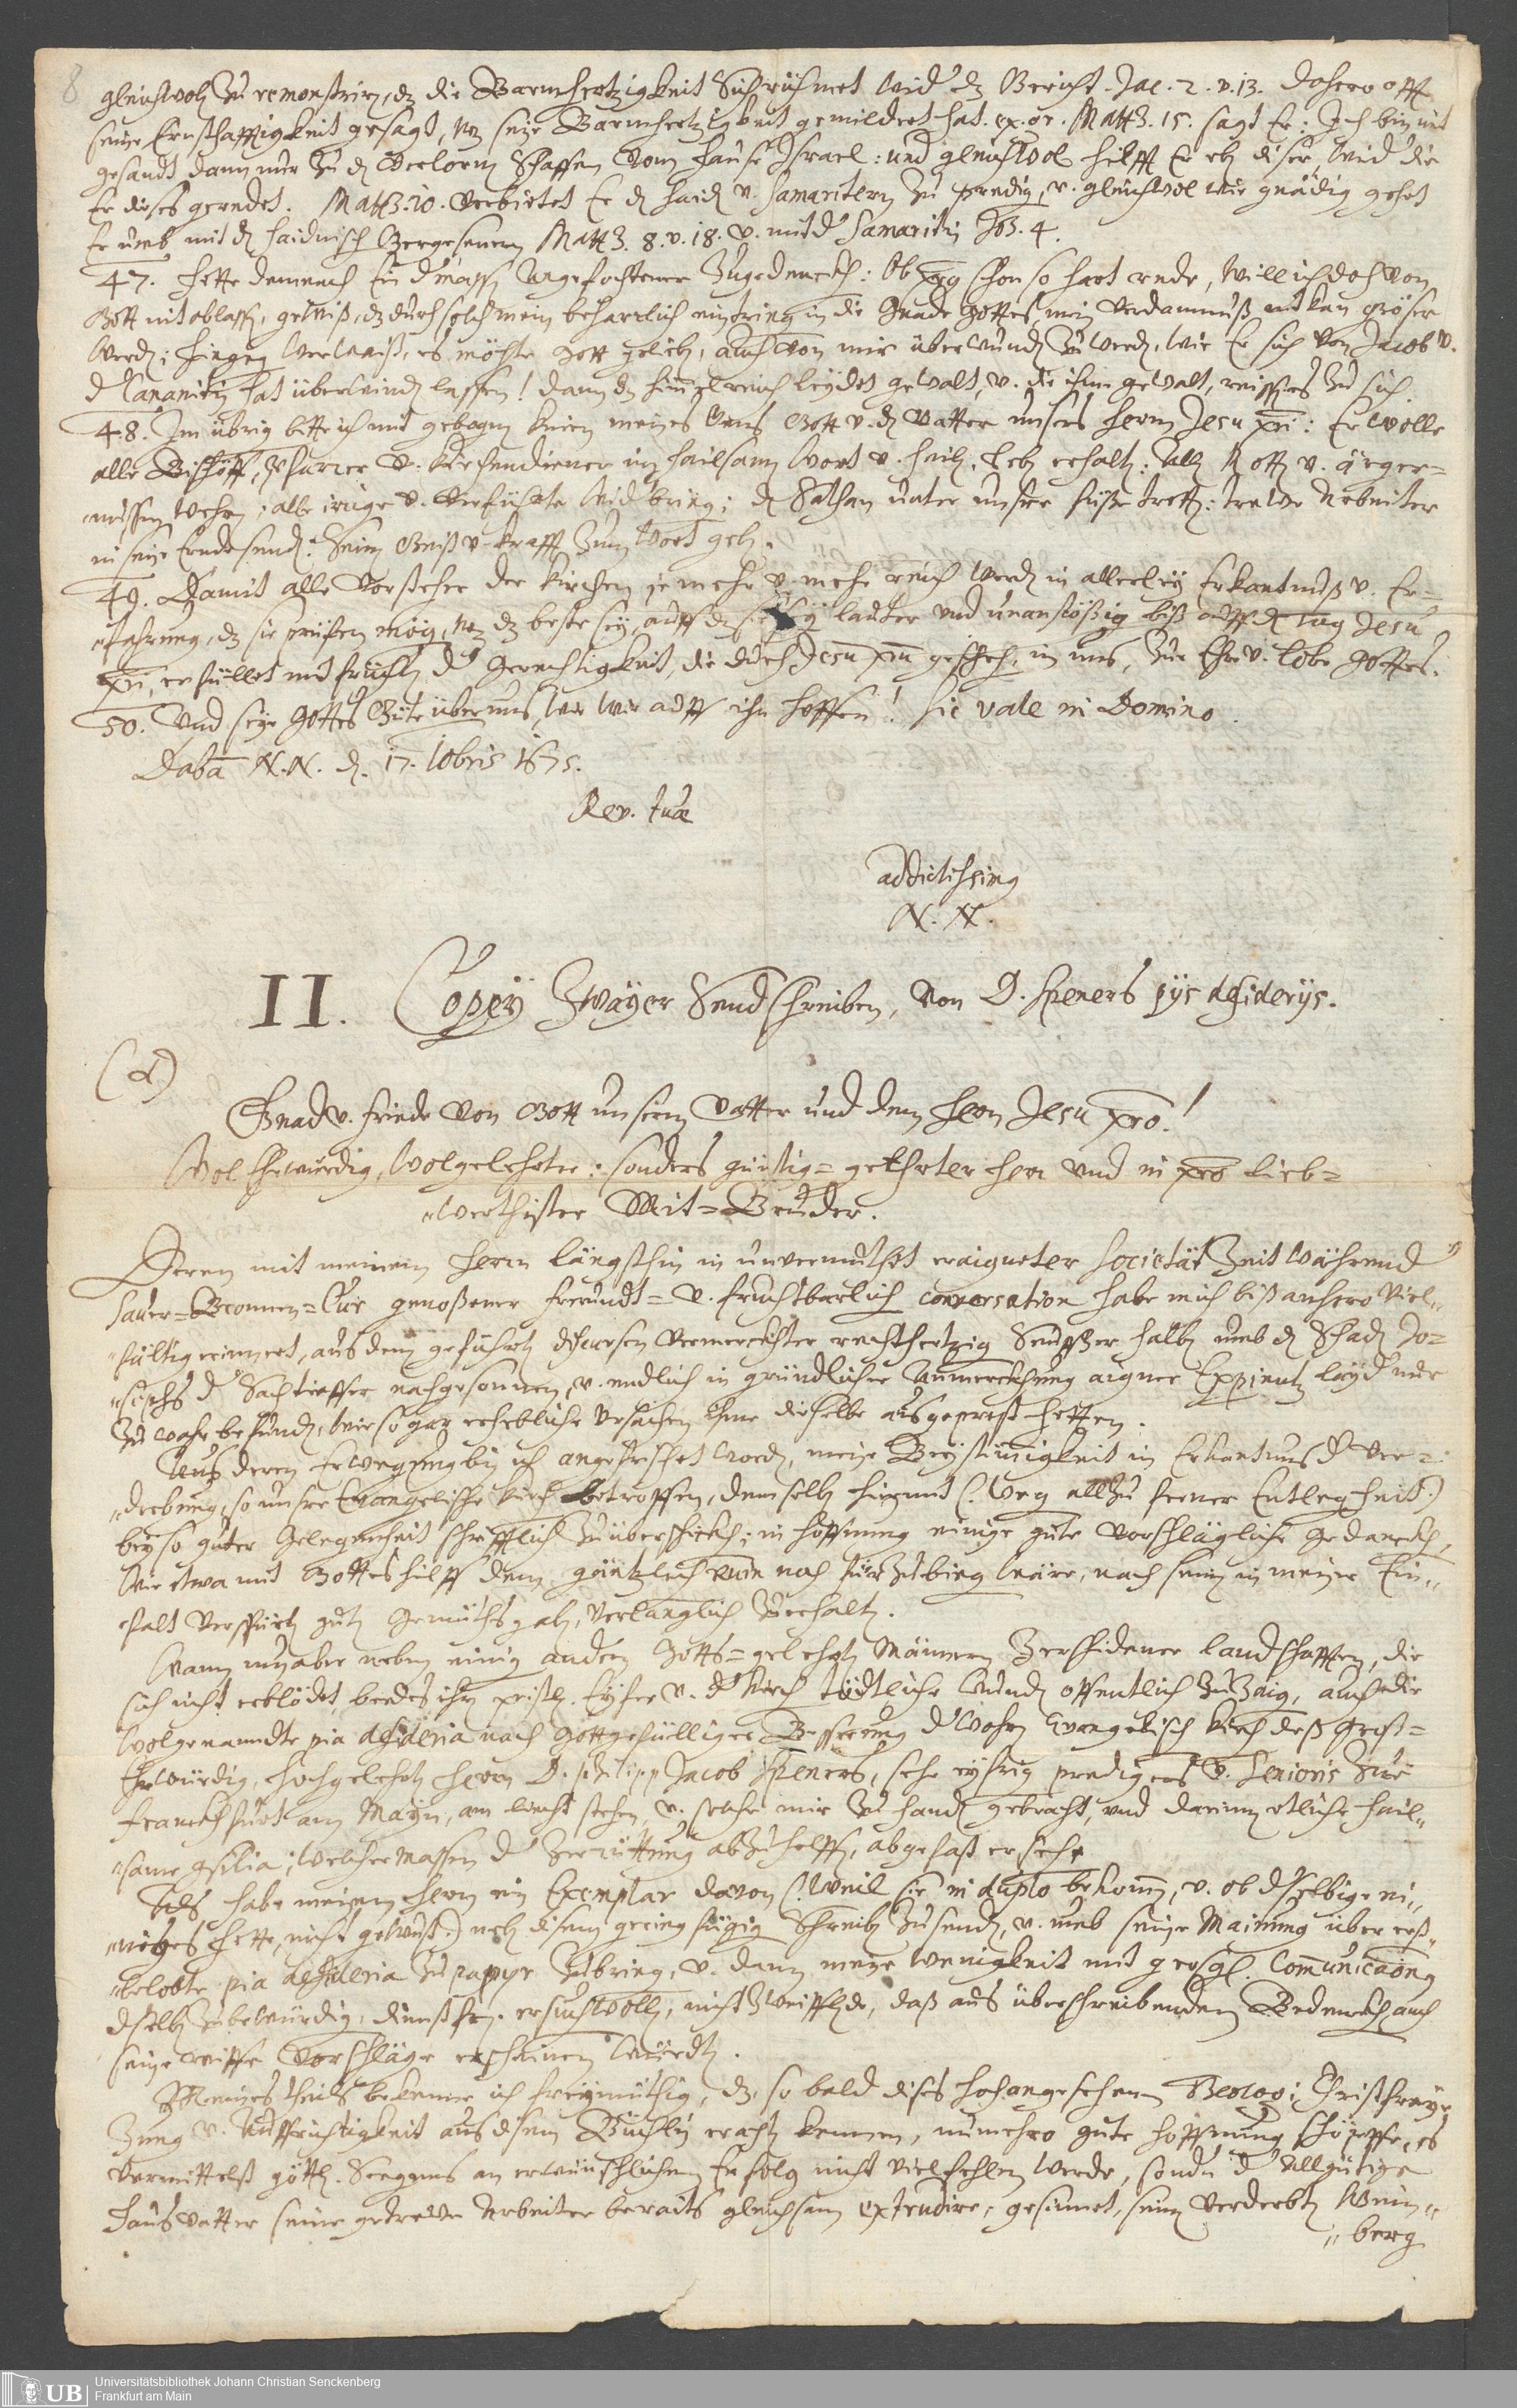 8
gleichwol zu remonstrirn, dz die Barmhertzigkeit sich rühmet wid dz Gericht. Jac. 2. v. 13. Dahero offt
seine Ernsthafftigkeit gesagt, seine Barmhertzigkeit gemildert hat. ex. gr. Matth. 15. sagt Er: Ich bin nit
gesandt dann nur zu d Verlorn Schaffen vom Hause Israel: und gleichwol hilfft Er eb diser, wid die
Er dieses geredet. Matth. 10. verbietet Er d Haid v. Samaritern zu predig, v. gleichwol wie gnädig gehet
Er umb mit d Haidnisch Gergesenern Matth. 8. v. 18. v. mit d Samaritin Joh. 4.
47. Hette demnach Ein d'mass Angefochtener Zugedenckh: Ob schon so hart rede, will ich doch von
Gott nit ablass, gewiß, dz durch solch mein beharrlich eintring in die Gnade Gottes, mein Verdammnuß nit kan gröser
werd; hingeg Wer waiß, es möchte Gott gelieb, auch von mir überwund zu werd, wie Er sich von Jacob v.
d Cananitin hat überwind lassen! dann dz himmelreich leydet gewalt, v. die ihm gewalt, reissens zu sich.
48. Im übrig bitte ich mit gebogen knien meines Gott v. d Vatter unsers Herrn Jesu Xri: Er wolle
alle Bischöff, Pfarrer v. Kirchendiener im hailsam Wort v. heilig Leb erhalt: All Rott v. ärger=
nussen wehrn; alle irrige v. Verführte widbring; d Sathan unter unsere füße trett: trewe Arbeiter
in seine Ernde send: Seinen Geist v. krafft zum Wort geb.
49. Damit alle Vorsteher der Kirchen je mehr v. mehr reich werd in allerley Erkantnuß v. Er=
fahrung, dz sie prüfen mög, dz beste sey, auff dz sie sey lauter und unanstößig biß auff d Tag Jesu
Xri, erfüllet mit frücht d' Gerechtigkeit, die durch Jesu Xrm gescheh, in uns, zur Ehr v. lobe Gottes.
50. Und seye Gottes Güte über uns, wie wir auff ihn hoffen! Sic vale in Domino.
N.N. d. 17. 1675.
Rev. tuæ
addictissimg
N. N.
II. Copey Zwayer Sendschreiben, von D. Speners pijs desiderijs.
Gnad v. Friede von Gott unserm Vatter und dem Herrn Jesu Xro!
Wol Ehrwürdig, Wolgelehrter: sonders günstig= geEhrter Herr und in Xro lieb=
werthister Mit=Bruder.
Deren mit meinem Herrn längsthin in unvermuthet eraigneter Societät Zeit während
Saur=Bronnen=Cur genoßener freundt= v. fruchtbarlich conversation habe mich biß anhero viel
fältig erinnert, aus dem geführt discursen vermerckhter rechthertzig Seuftzer halb umb d Schad Jo=
sephs d Sach tieffer nachgesonnen, v. endlich in gründlicher Anmerckhung aigner Experientz leyd nur
zu wahr befund, wie so gar erhebliche Ursachen Ihme dieselbe ausgeprest hetten.
Aus deren Erwegung bin ich angefrischet word, meine Beystimmigkeit in Erkantnus d' Ver=
derbung, so unsere Evangelische kirch betroffen, demselb hiemit (: weg allzu ferner Entlegenheit:)
bey so guter Gelegenheit schrifftlich zuüberschickh; in hoffnung einige gute Vorschlägliche gedanckh,
wie etwa mit Gottes hilff dem gäntzlich ruin noch fürzubieg wäre, nach sein in meiner Ein
falt verspürt gut Gemüthsgab, verlänglich zuerhalt.
Wann nun aber neben einig andern Gotts=gelehrt Männern zerschidener landschafften, die
sich nicht erblödet, beedes ihrn Xristl. Eyfer v. d' kirch tödtliche Wund offentlich zuzaig, auch die
Wolgenandte pia desideria nach Gottgefälliger Besserung d' wahrn Evangelisch kirch deß Groß=
Ehrwürdig, hochgelehrt Herrn D. Philipp Jacob Speners, sehr eyfrig predigers v. Senioris zue
Franckhfurt am Mayn, am liecht stehen, v. solche mir zu hand gebracht, und darinn etliche hail
same consilia; welcher massen d' Zerrüttung abzuhelffen, abgefast ersehe.
Als habe meinem Herrn ein Exemplar davon (: weil sie in duplo bekomm, v. ob dselbige ei
niges hette, nicht gewust:) neb disem gering fügig Schreib zusend, v. umb seine Mainung über erst
belobte pia desideria zu papyr zubring, v. dann meine wenigkeit mit communication
dselb zubewürdig, ersuch woll, nicht zweiflde, daß aus überschreibenden Bedenckh auch
seine reiffe Vorschläge erscheinen würdt.
Meines theils bekenne ich freymüthig, dz so bald dises hochangesehenen Theologi Christfrey
zung v. Auffrichtigkeit aus disem Büchlin kennen, numehro gute hoffnung schöpffe, es
vermittelst göttl. Seegens an erwünschlichem Erfolg nicht viel fehlen werde, sondn d' Allgütige
Hausvatter seine getrewe Arbeiter beraits gleichsam extrudire, gesinnet, seinen Verderbt Wein
berg
UB Universitätsbibliothek Johann Christian Senckenberg
Frankfurt am Main